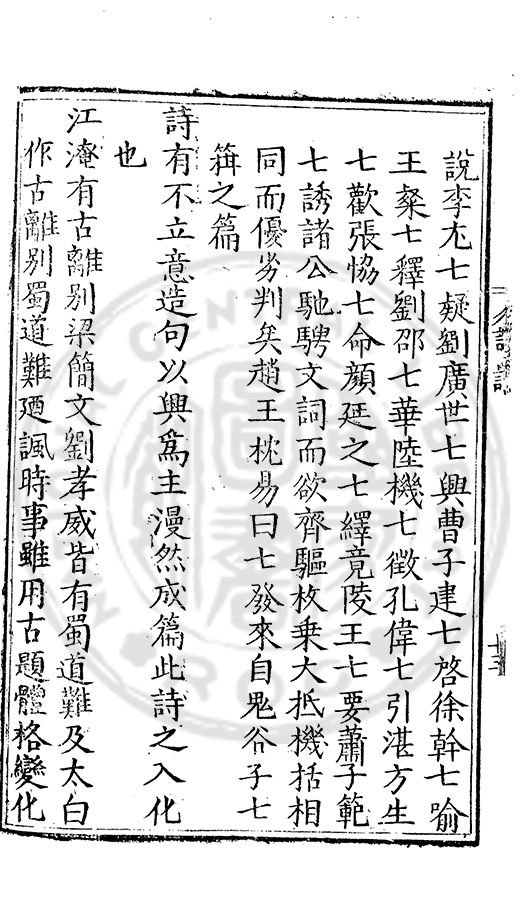 說李尤七疑劉廣世七興曹子建七啓徐幹七喻
王粲七釋劉邵七華陸機七徵孔偉七引湛方生
七歡張恊七命顔延之七繹竟陵王七要蕭子範
七誘諸公馳騁文詞而欲齊驅枚乗大抵機括相
同而優劣判矣趙王枕昜曰七發來自鬼谷子七
箝之篇
詩有不立意造句以興爲主漫然成篇此詩之入化
也
江淹有古離别梁簡文劉孝威皆有蜀道難及太白
作古離别蜀道難廼諷時事雖用古題體格變化